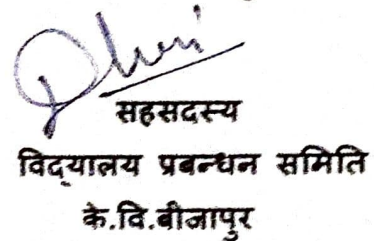 सहसदस्य
विद्यालय प्रबन्धन समिति
के.वि.बीजापुर